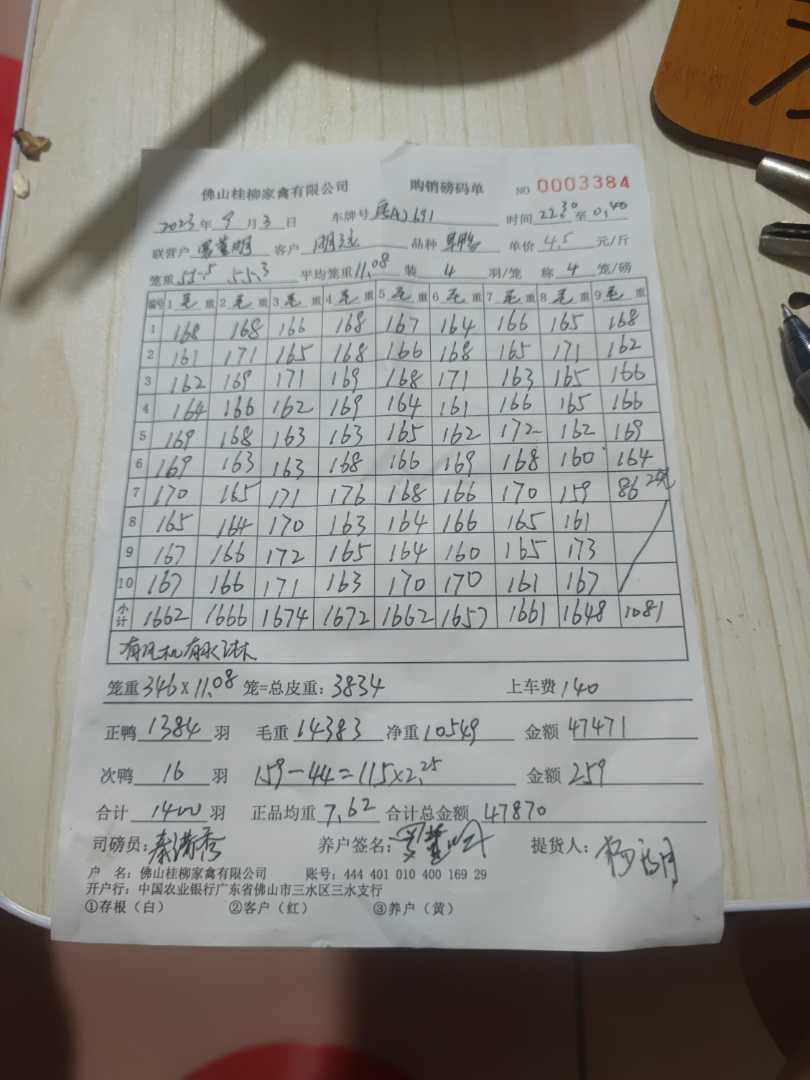 佛山桂柳家禽有限公司 购销磅码单 NO 0003384
2023年9月3日 车牌号 1691 时间 2230至0,40
联营户 客户 品种 单价 4.5 元/斤
笼重 55.5 55.3 平均笼重 11.08 装 4 羽/笼 称 4 笼/磅
编号 1 毛 重 2 毛 重 3 毛 重 4 毛 重 5 毛 重 6 毛 重 7 毛 重 8 毛 重 9 毛 重
1 168 168 166 168 167 164 166 165 168
2 161 171 165 168 166 168 165 171 162
3 162 169 171 169 168 171 163 165 166
4 164 166 162 169 164 161 166 165 166
5 169 168 163 163 165 162 172 162 169
6 169 163 163 168 166 169 168 160 164
7 170 165 171 176 168 166 170 159 86
8 165 164 170 163 164 166 165 161
9 167 166 172 165 164 160 165 173
10 167 166 171 163 170 170 161 167
小计 1662 1666 1674 1672 1662 1657 1661 1648 1081
有风机有水
笼重 346×11.08 笼=总皮重: 3834 上车费 140
正鸭 1384 羽 毛重 14383 净重 10549 金额 47471
次鸭 16 羽 159-44=115×2.25 金额 259
合计 1400 羽 正品均重 7,62 合计总金额 47870
司磅员: 养户签名: 提货人:
户 名: 佛山桂柳家禽有限公司 账号: 444 401 010 400 169 29
开户行: 中国农业银行广东省佛山市三水区三水支行
①存根(白) ②客户(红) ③养户(黄)